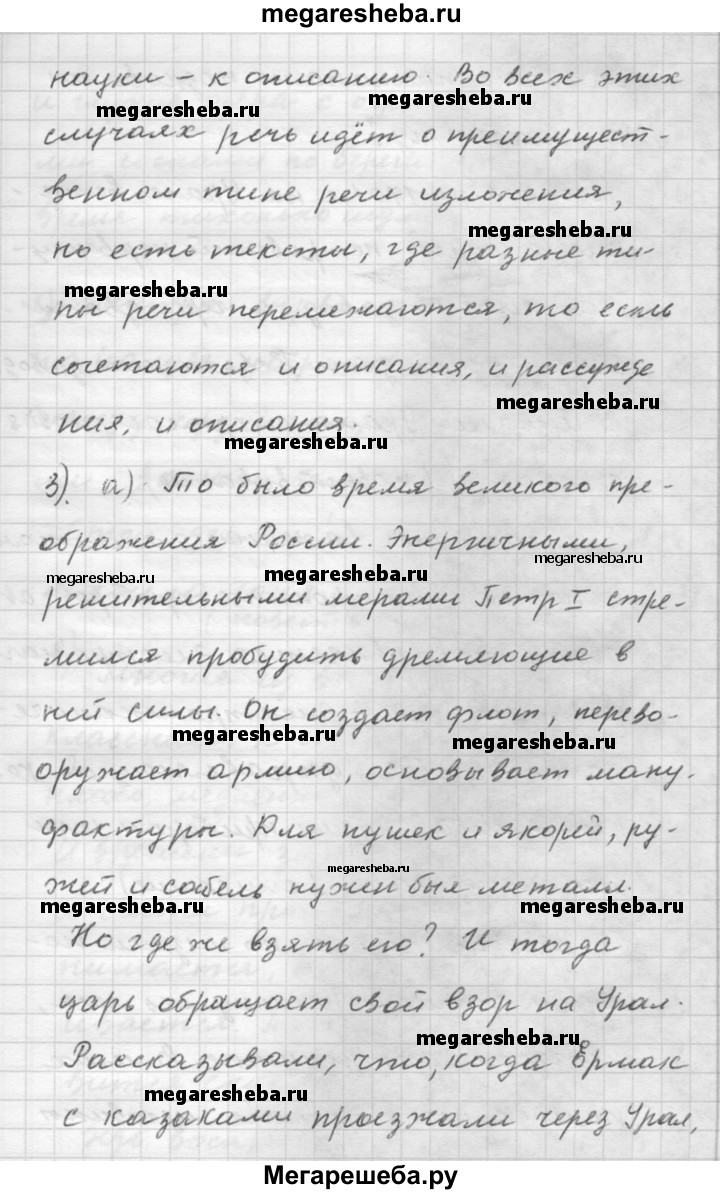 megaresheba.ru
науки - к описанию. Во всех этих
megaresheba.ru megaresheba.ru
случаях речь идёт о преимущест-
венном типе речи изложения,
megaresheba.ru
но есть тексты, где разные ти-
megaresheba.ru
пы речи перемежаются, то есть
сочетаются и описания, и рассужде
megaresheba.ru
ния, и описания.
megaresheba.ru
3). а) То было время великого пре-
ображения России. Энергичными,
megaresheba.ru megaresheba.ru megaresheba.ru
решительными мерами Петр I стре-
мился пробудить дремлющие в
ней силы. Он создает флот, перево-
megaresheba.ru megaresheba.ru
оружает армию, основывает ману-
фактуры. Для пушек и якорей, ру-
megaresheba.ru
жей и сабель нужен был металл.
megaresheba.ru megaresheba.ru
Но где же взять его? И тогда
царь обращает свой взор на Урал.
megaresheba.ru
Рассказывали, что, когда Ермак
megaresheba.ru
с казаками проезжали через Урал,
Мегарешеба.ру